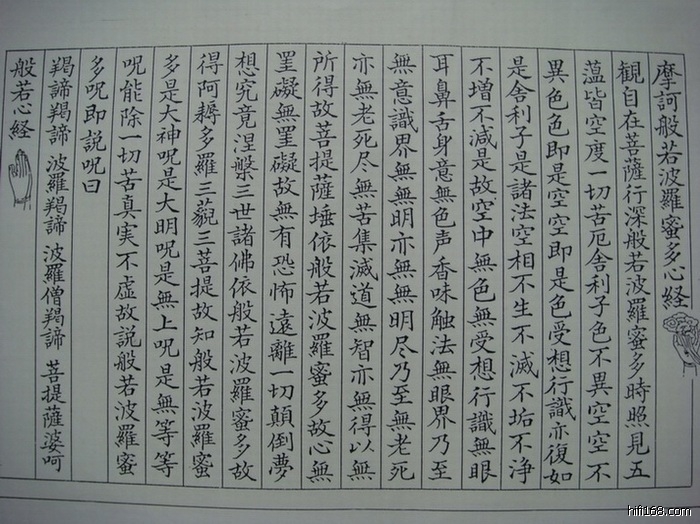 摩訶般若波羅蜜多心経
観自在菩薩行深般若波羅蜜多時照見五
薀皆空度一切苦厄舎利子色不異空空不
異色色即是空空即是色受想行識亦復如
是舎利子是諸法空相不生不滅不垢不浄
不増不減是故空中無色無受想行識無眼
耳鼻舌身意無色声香味触法無眼界乃至
無意識界無無明亦無無明尽乃至無老死
亦無老死尽無苦集滅道無智亦無得以無
所得故菩提薩埵依般若波羅蜜多故心無
罣礙無罣礙故無有恐怖遠離一切顛倒夢
想究竟涅槃三世諸佛依般若波羅蜜多故
得阿耨多羅三藐三菩提故知般若波羅蜜
多是大神呪是大明呪是無上呪是無等等
呪能除一切苦真実不虚故説般若波羅蜜
多呪即説呪曰
羯諦羯諦 波羅羯諦 波羅僧羯諦 菩提薩婆呵
般若心経
hifi168.com